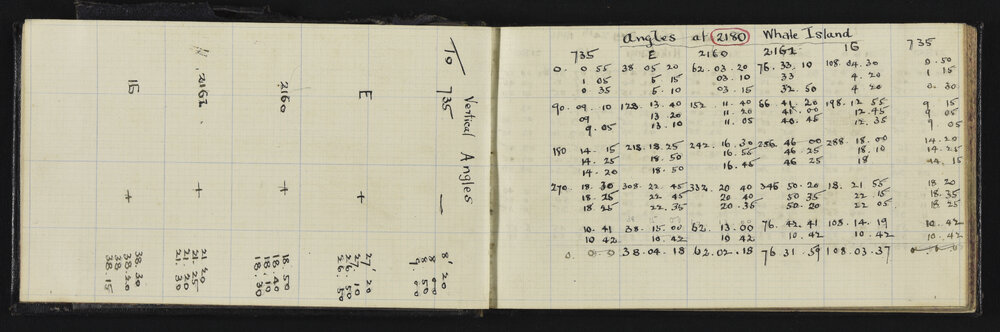 Vertical Angles
To 735 — 8' 20
8 00
8 50
9. 00
E + 27' 20
27. 10
26. 50
26. 50
2160 + 18. 50
18. 40
18. 10
18. 30
2162 + 21 20
21. 25
21. 20
21 30
1G + 38. 30
38. 20
38
38. 15
Angles at 2180 Whale Island
735 E 2160 2162 1G 735
0. 0 55 38 05 20 62. 03. 20 76. 33. 10 108. 04. 30 0. 50
1 05 5 15 03. 10 33 4. 20 1 15
0 35 5. 10 03. 15 32. 50 4 20 0. 30
90. 09. 10 128. 13. 40 152. 11. 40 66 41. 20 198. 12. 55 9 15
09 13. 20 11. 20 41. 00 12. 45 9 05
9. 05 13. 10 11. 05 40. 45 12. 35 9. 05
180 14. 15 218. 18. 25 242. 16. 30 256. 46 00 288. 18. 00 14. 20
14. 25 18. 50 16. 55 46 25 18. 10 14. 25
14. 20 18. 50 16. 45 46 25 18 14. 15
270. 18. 30 308. 22. 45 332. 20 40 346 50. 20 18. 21 55 18 20
18. 25 22. 45 20 40 50. 35 22 15 18. 35
18 25 22. 35 20. 35 50. 20 22 05 18 25
10. 41 38. 15. 00 62. 13. 00 76. 42. 41 108. 14. 19 10. 42
10 42 10. 42 10 42 10. 42 10. 42 10. 42
0. 0. 0 38. 04. 18 62. 02. 18 76 31. 59 108. 03. 37 0. 0. 0